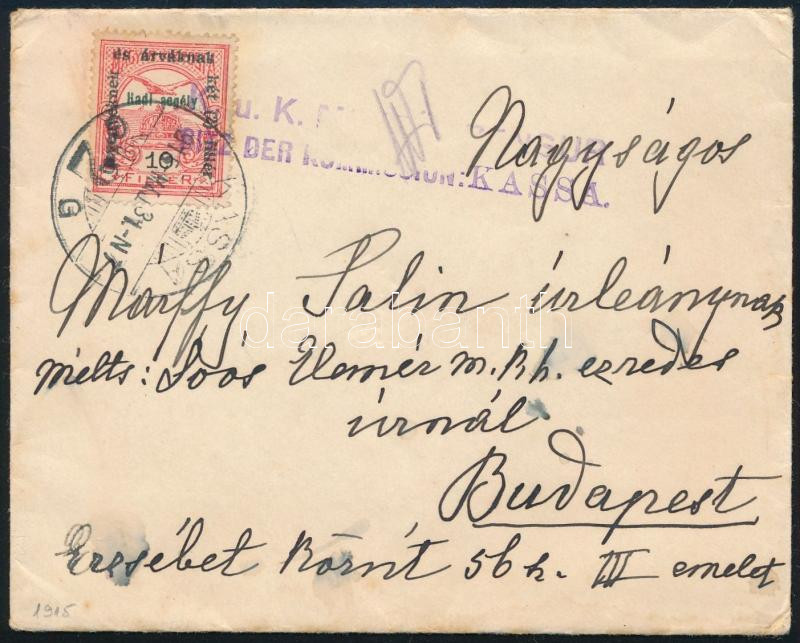 és árváknak
Hadi segély
10
FILLÉR
u. K.
DER KOMMISSION: KASSA.
KASSA
G
Nagyságos
Marffy Salin úrleánynak
mélts: Soós Elemér m. k. h. ezredes
úrnál
Budapest
Erzsébet körút 56 h. III emelet
1915
darabanth